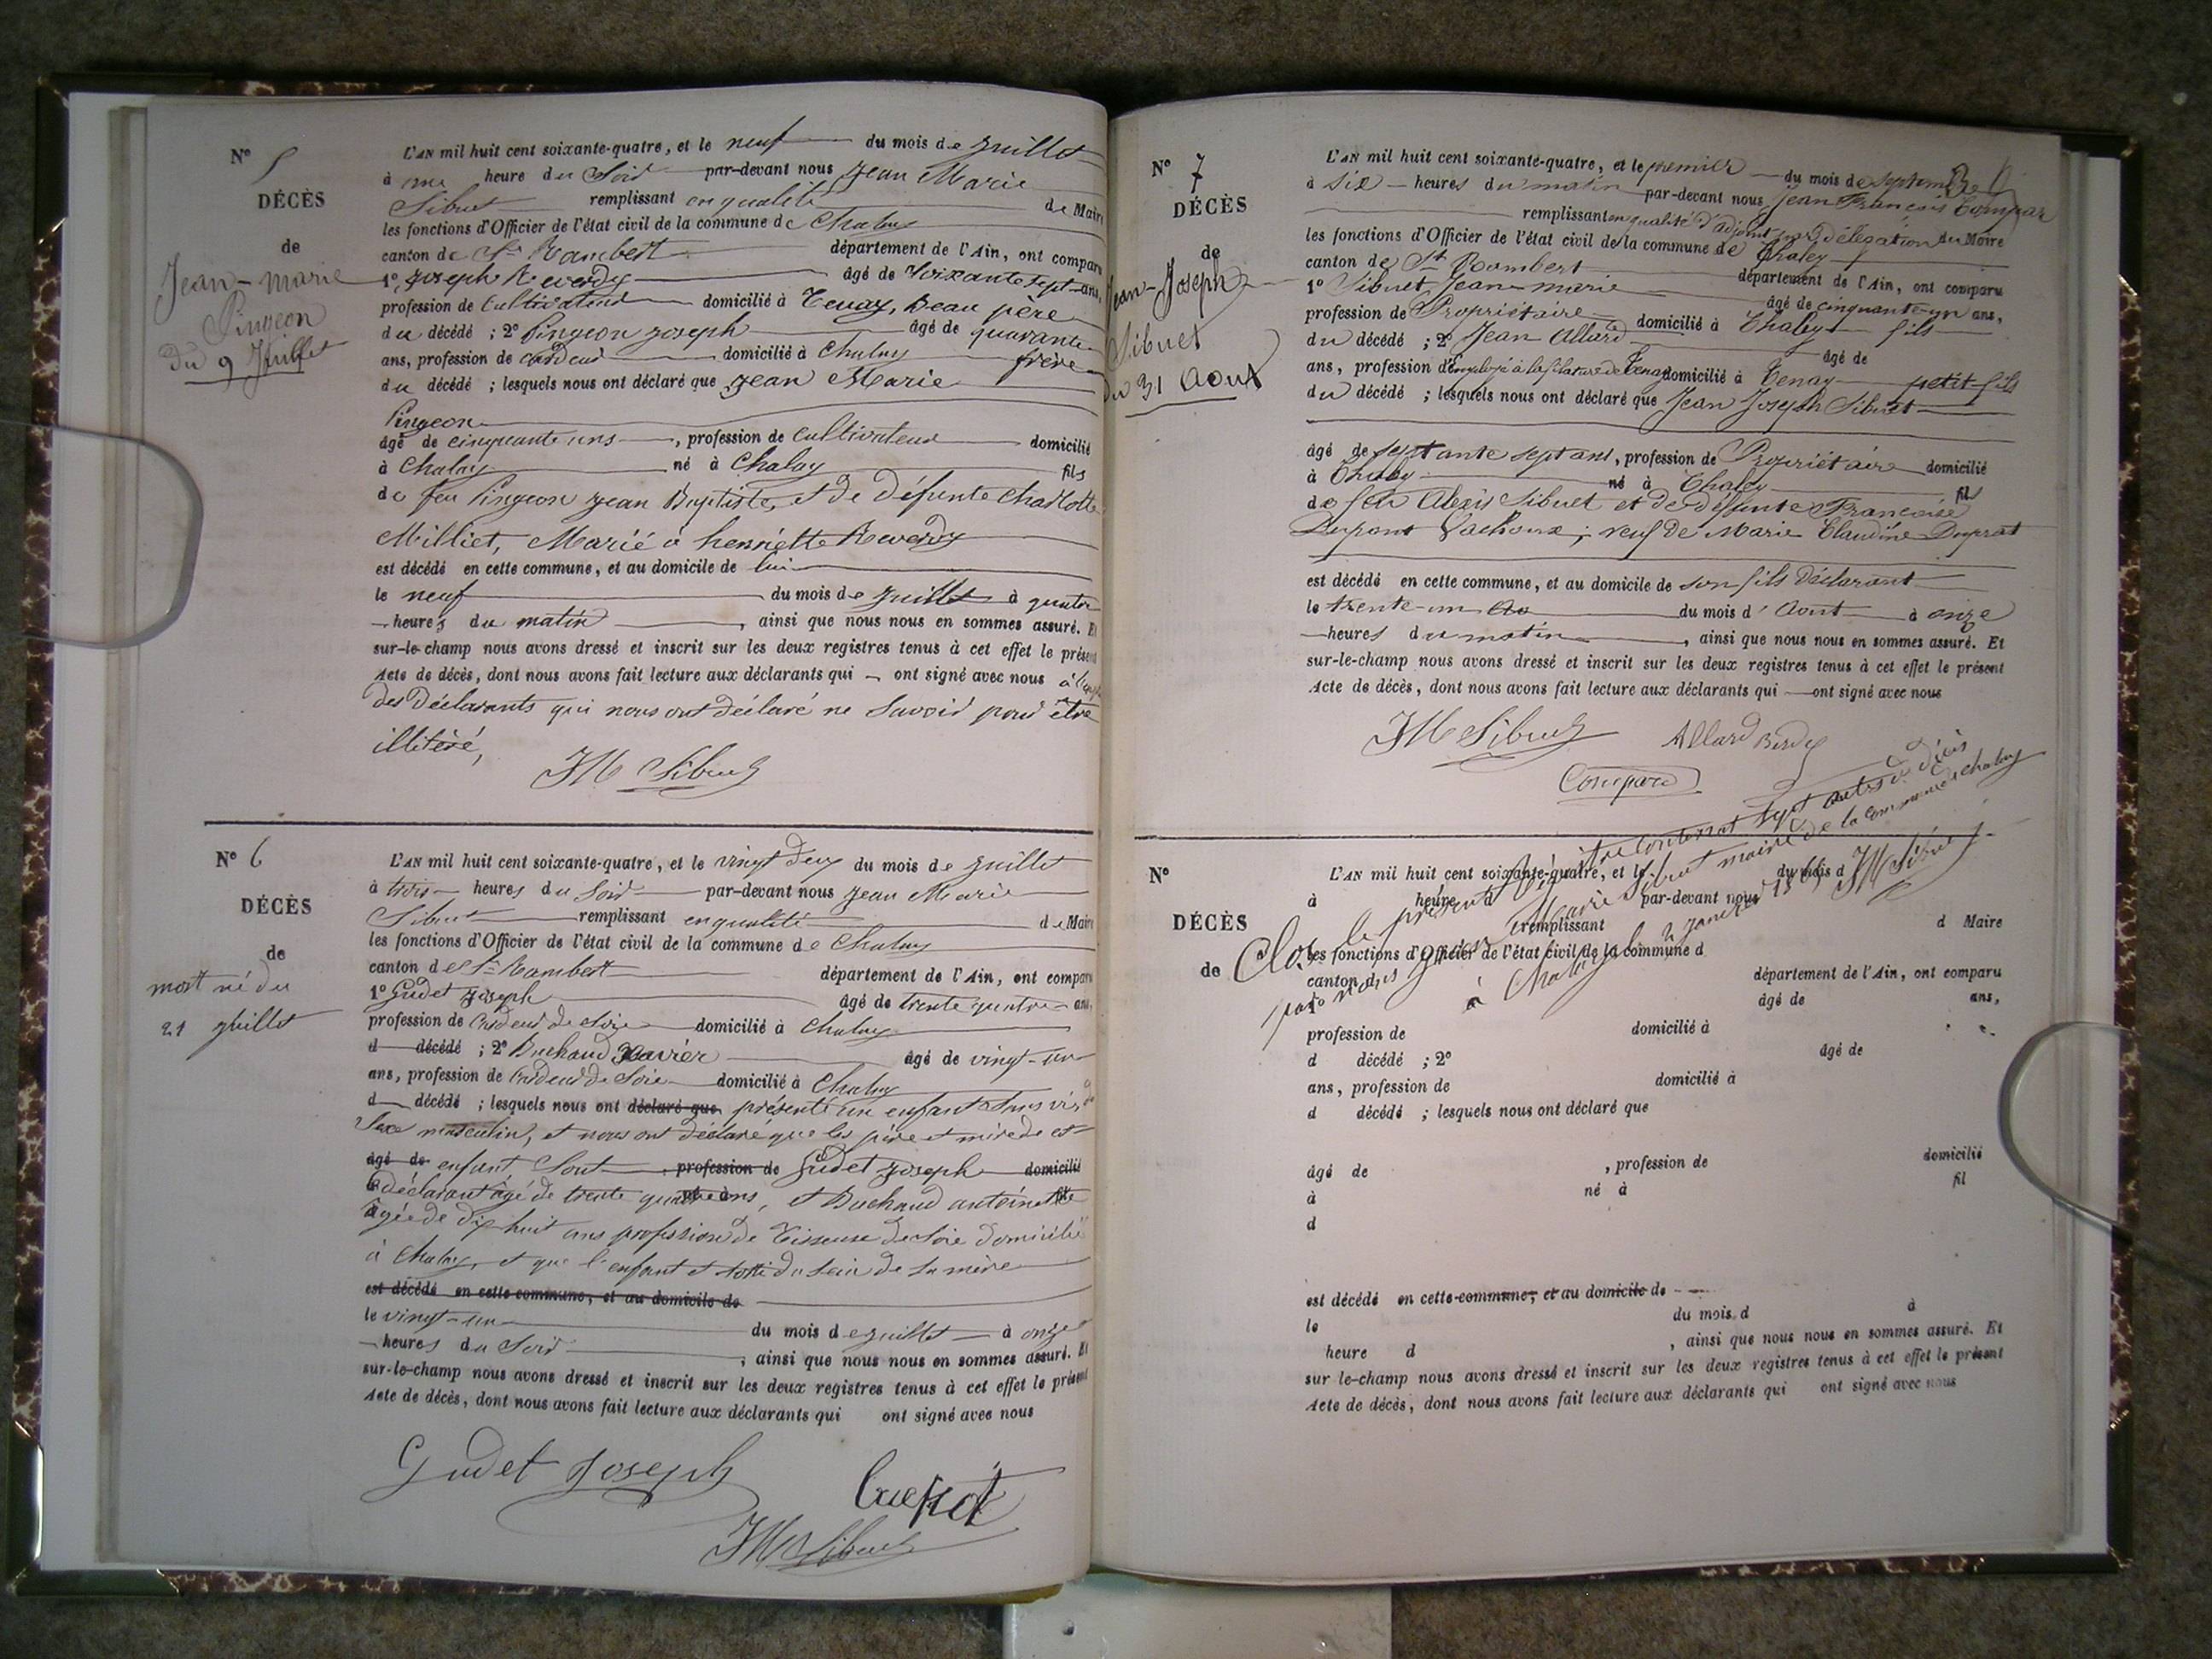 N° 5
DÉCÈS
de
Jean-Marie
Pingeon
du 9 Juillet
L'AN mil huit cent soixante-quatre, et le neuf du mois de Juillet
à une heure du Soir par-devant nous Jean Marie
Sibuet remplissant en qualité de Maire
les fonctions d'Officier de l'état civil de la commune de Chaley
canton de St Rambert département de l'Ain, ont comparu
1° Joseph Reverdy âgé de soixante sept ans,
profession de Cultivateur domicilié à Tenay, Beau père
du décédé ; 2° Pingeon Joseph âgé de quarante
ans, profession de cardeur domicilié à Chaley frère
du décédé ; lesquels nous ont déclaré que Jean Marie
Pingeon
âgé de cinquante uns, profession de cultivateur domicilié
à Chaley né à Chaley fils
de feu Pingeon Jean Baptiste, et de défunte Charlotte
Milliet, Marié à henriette Reverdy
est décédé en cette commune, et au domicile de lui
le neuf du mois de Juillet à quatre
heures du matin, ainsi que nous nous en sommes assuré. Et
sur-le-champ nous avons dressé et inscrit sur les deux registres tenus à cet effet le présent
Acte de décès, dont nous avons fait lecture aux déclarants qui ont signé avec nous à
des déclarants qui nous ont déclaré ne savoir pour être
illitéré,
JM Sibuet
N° 6
DÉCÈS
de
mort né du
21 Juillet
L'AN mil huit cent soixante-quatre, et le vingt deux du mois de Juillet
à trois heures du Soir par-devant nous Jean Marie
Sibuet remplissant en qualité de Maire
les fonctions d'Officier de l'état civil de la commune de Chaley
canton de St Rambert département de l'Ain, ont comparu
1° Gudet Joseph âgé de trente quatre ans,
profession de Cardeur de Soie domicilié à Chaley
d décédé ; 2° Buchaud Xavier âgé de vingt-un
ans, profession de Cardeur de Soie domicilié à Chaley
d décédé ; lesquels nous ont déclaré que présenté un enfant sans vie,
Sexe masculin, et nous ont déclaré que les père et mère de cet
âgé de enfant Sont profession de Gudet Joseph domicilié
déclarant âgé de trente quatre ans, et Buchaud antoinette
agée de dix huit ans profession de Tisseuse de Soie domicilié
à Chaley, et que l'enfant est sorti du sein de sa mère
est décédé en cette commune, et au domicile de
le vingt-un du mois de Juillet à onze
heures du Soir, ainsi que nous nous en sommes assuré. Et
sur-le-champ nous avons dressé et inscrit sur les deux registres tenus à cet effet le présent
Acte de décès, dont nous avons fait lecture aux déclarants qui ont signé avec nous
Gudet Joseph
JM Sibuet
N° 7
DÉCÈS
de
Jean-Joseph
Sibuet
du 31 Aout
L'AN mil huit cent soixante-quatre, et le premier du mois de septembre
à six heures du matin par-devant nous Jean François Compar
remplissant en qualité d'adjoint par délégation du Maire
les fonctions d'Officier de l'état civil de la commune de Chaley
canton de St Rambert département de l'Ain, ont comparu
1° Sibuet Jean-marie âgé de cinquante-un ans,
profession de Propriétaire domicilié à Chaley fils
du décédé ; 2° Jean Allard âgé de
ans, profession d'Employé à la filature de Tenay domicilié à Tenay petit-fils
du décédé ; lesquels nous ont déclaré que Jean Joseph Sibuet
âgé de septante sept ans, profession de Propriétaire domicilié
à Chaley né à Chaley fil
de feu Alexis Sibuet et de défunte Françoise
Dupont Vachoux ; veuf de Marie Claudine Duprat
est décédé en cette commune, et au domicile de son fils déclarant
le trente-un du mois d'Aout à onze
heures du matin, ainsi que nous nous en sommes assuré. Et
sur-le-champ nous avons dressé et inscrit sur les deux registres tenus à cet effet le présent
Acte de décès, dont nous avons fait lecture aux déclarants qui ont signé avec nous
JM Sibuet Allard
Compare
N°
DÉCÈS
de
Clos le présent Régistre contenant sept actes de décès
par nous Jean Marie Sibuet maire de la commune de Chaley
à Chaley le 2 janvier JM Sibuet
L'AN mil huit cent soixante-quatre, et le du mois d
à heure d par-devant nous
remplissant d Maire
les fonctions d'Officier de l'état civil de la commune d
canton d département de l'Ain, ont comparu
1° âgé de ans,
profession de domicilié à
d décédé ; 2° âgé de
ans, profession de domicilié à
d décédé ; lesquels nous ont déclaré que
âgé de , profession de domicilié
à né à fil
d
est décédé en cette commune, et au domicile de
le du mois d à
heure d , ainsi que nous nous en sommes assuré. Et
sur le-champ nous avons dressé et inscrit sur les deux registres tenus à cet effet le présent
Acte de décès, dont nous avons fait lecture aux déclarants qui ont signé avec nous